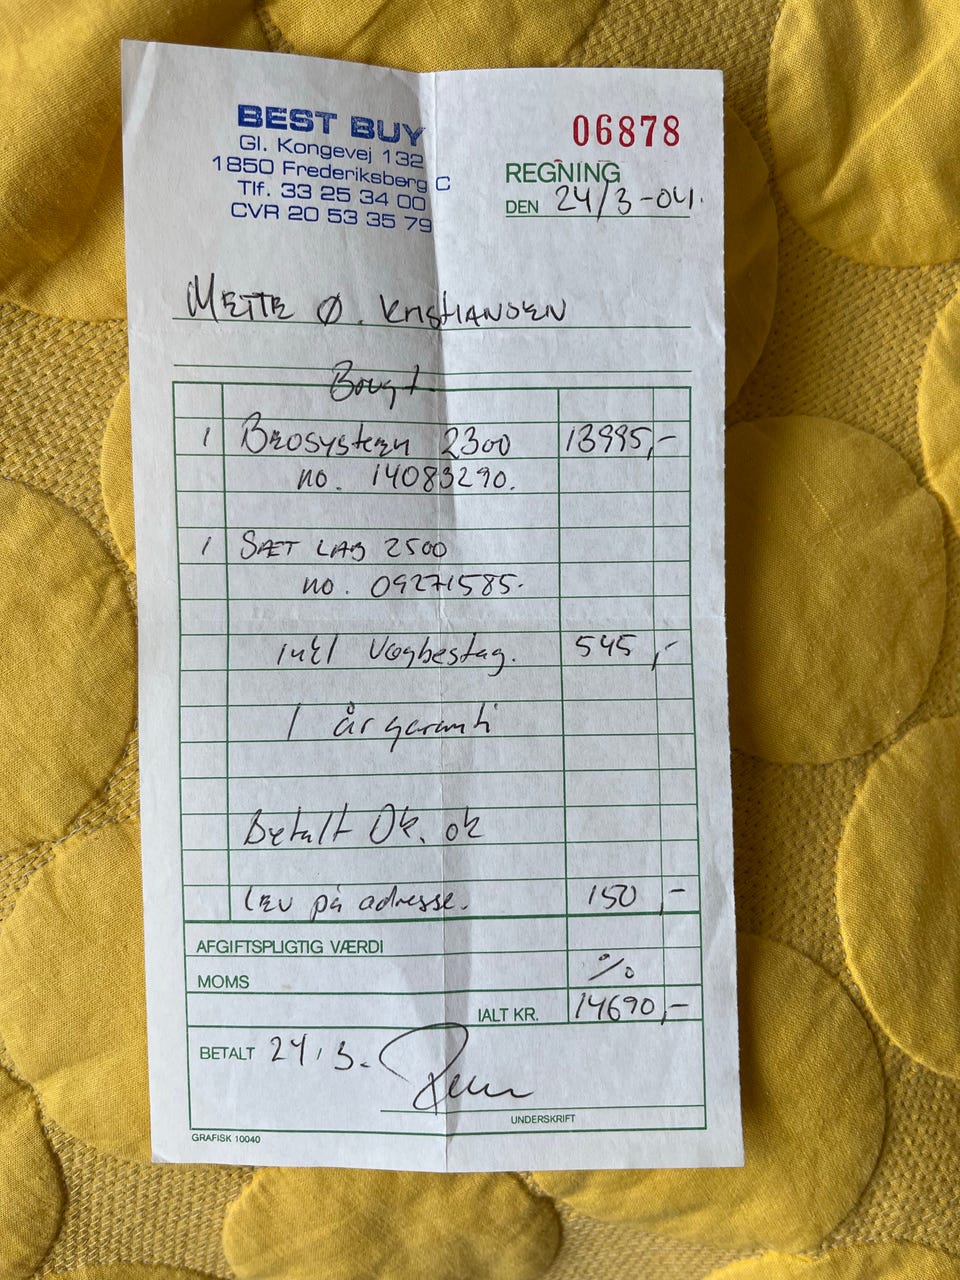 BEST BUY
Gl. Kongevej 132
1850 Frederiksberg C
Tlf. 33 25 34 00
CVR 20 53 35 79
06878
REGNING
DEN 24/3-04.
METTE Ø. KRISTIANSEN
Bougt
1 BEOSYSTEM 2300 13995,-
no. 14083290.
1 SÆT LAB 2500
no. 09271585.
inkl Vægbeslag. 545,-
1 år garanti
Betalt Dk. ok
Lev på adresse. 150,-
AFGIFTSPLIGTIG VÆRDI
MOMS %
IALT KR. 14690,-
BETALT 24/3.
UNDERSKRIFT
GRAFISK 10040